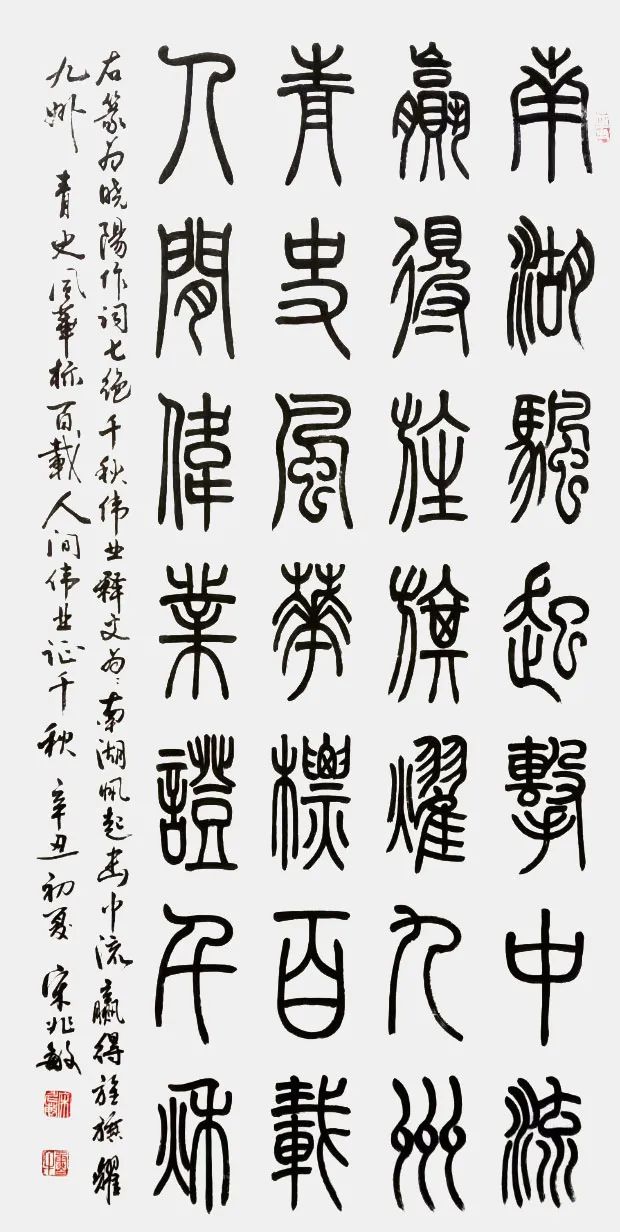 南湖颿起擊中流
贏得旌旗耀九州
青史風華標百載
人間偉業證千秋
右篆为晓陽作词七绝千秋伟业释文为：南湖帆起击中流赢得旌旗耀
九州青史风華标百载人间伟业证千秋辛丑初夏宋兆敏